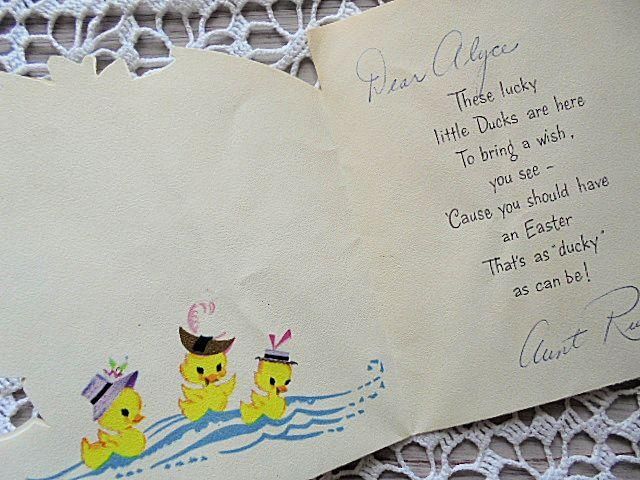 Dear Alyce
These lucky
little Ducks are here
To bring a wish,
you see -
'Cause you should have
an Easter
That's as "ducky"
as can be!
Aunt